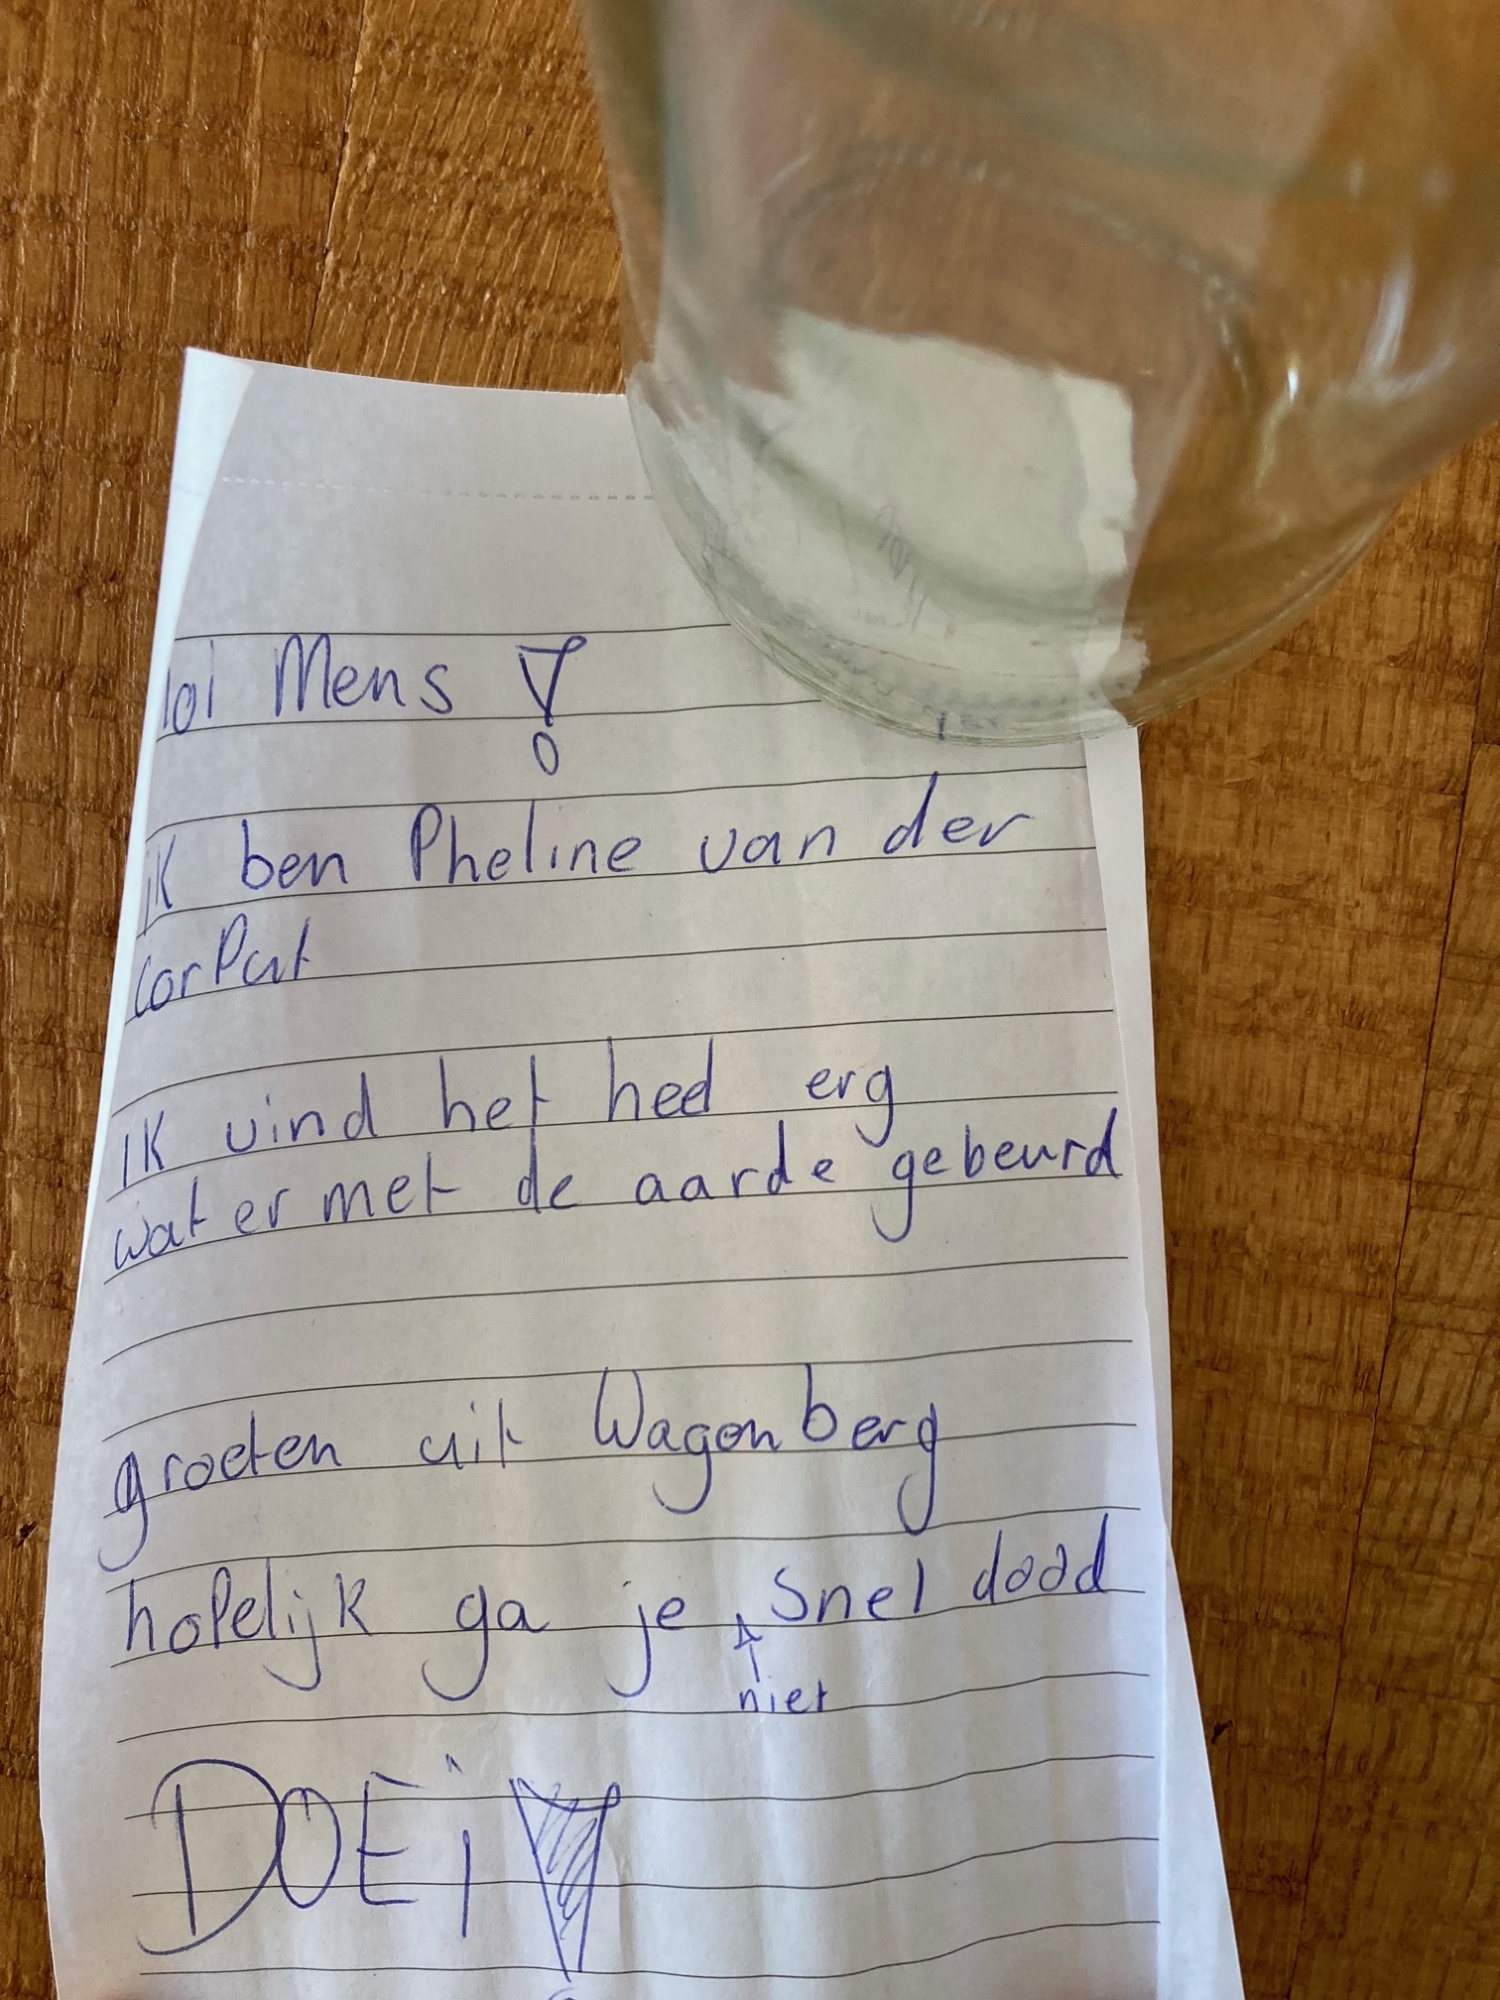 lol Mens !
ik ben Pheline van der
CorPut
IK vind het heel erg
wat er met de aarde gebeurd
groeten uit Wagenberg
hopelijk ga je snel dood
niet
DOEi !